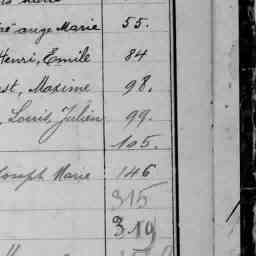 ange Marie 55.
Henri, Emile 84
Maxime 98.
Louis Julien 99.
105.
Joseph Marie 146
315
319